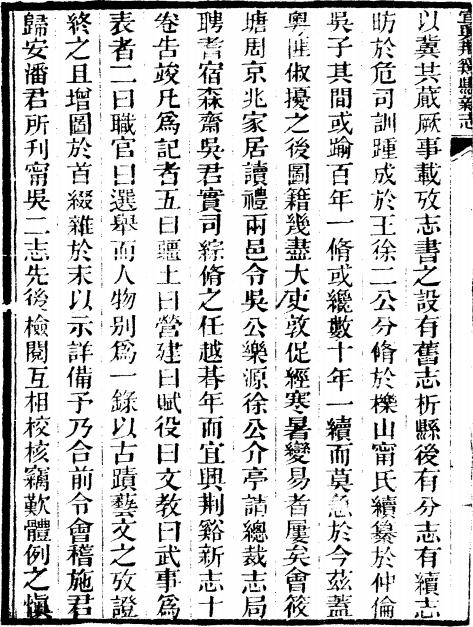 宜興荊谿縣新志
以冀共蕆厥事載攷志書之設有舊志析縣後有分志有續志
昉於危司訓踵成於王徐二公分脩於櫟山甯氏續纂於仲倫
吳子其間或踰百年一脩或纔數十年一續而莫急於今茲葢
粵匪俶擾之後圖籍幾盡大吏敦促經寒暑變易者屢矣會筱
塘周京兆家居讀禮兩邑令吳公樂源徐公介亭請總裁志局
聘耆宿森齋吳君實司綜脩之任越朞年而宜興荆谿新志十
卷告竣凡爲記者五曰疆土曰營建曰賦役曰文教曰武事爲
表者二曰職官曰選舉而人物别爲一錄以古蹟藝文之攷證
終之且增圖於首綴雜於末以示詳備予乃合前令會稽施君
歸安潘君所刋甯吳二志先後檢閱互相校核竊歎體例之愼